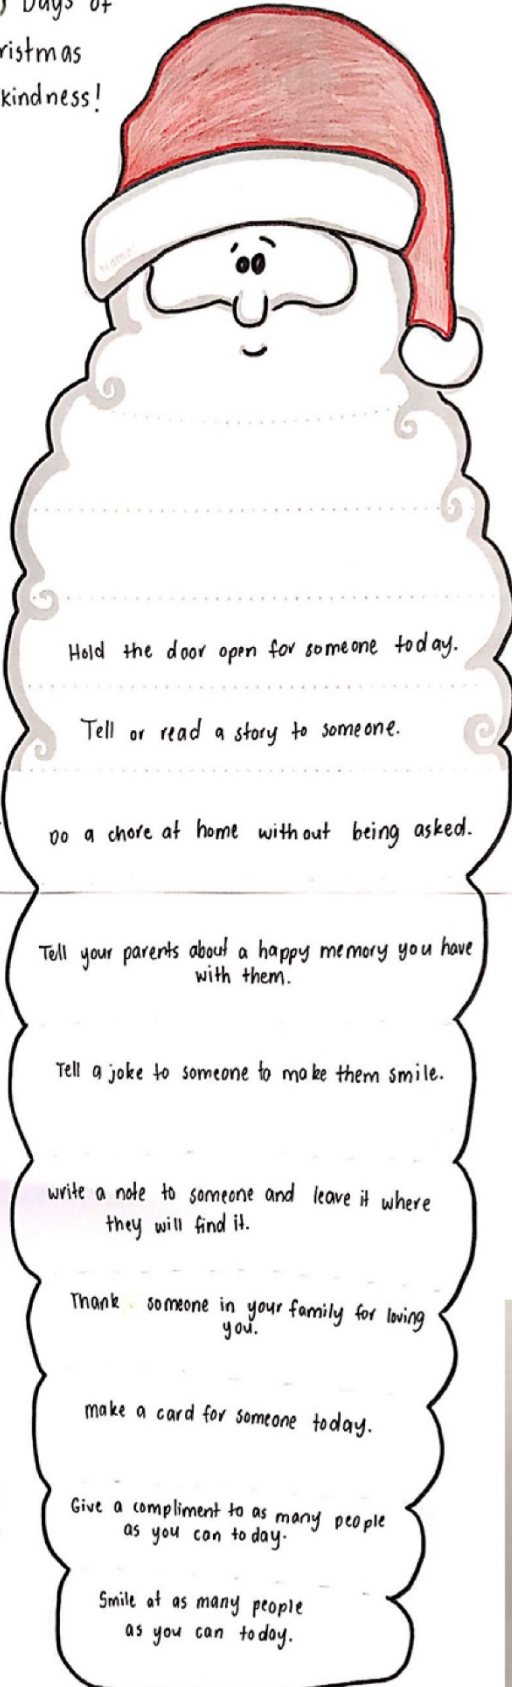 Days of
kindness!
Hold the door open for someone today.
Tell or read a story to someone.
Do a chore at home without being asked.
Tell your parents about a happy memory you have
with them.
Tell a joke to someone to make them smile.
write a note to someone and leave it where
they will find it.
Thank someone in your family for loving
you.
make a card for someone today.
Give a compliment to as many people
as you can today.
Smile at as many people
as you can today.